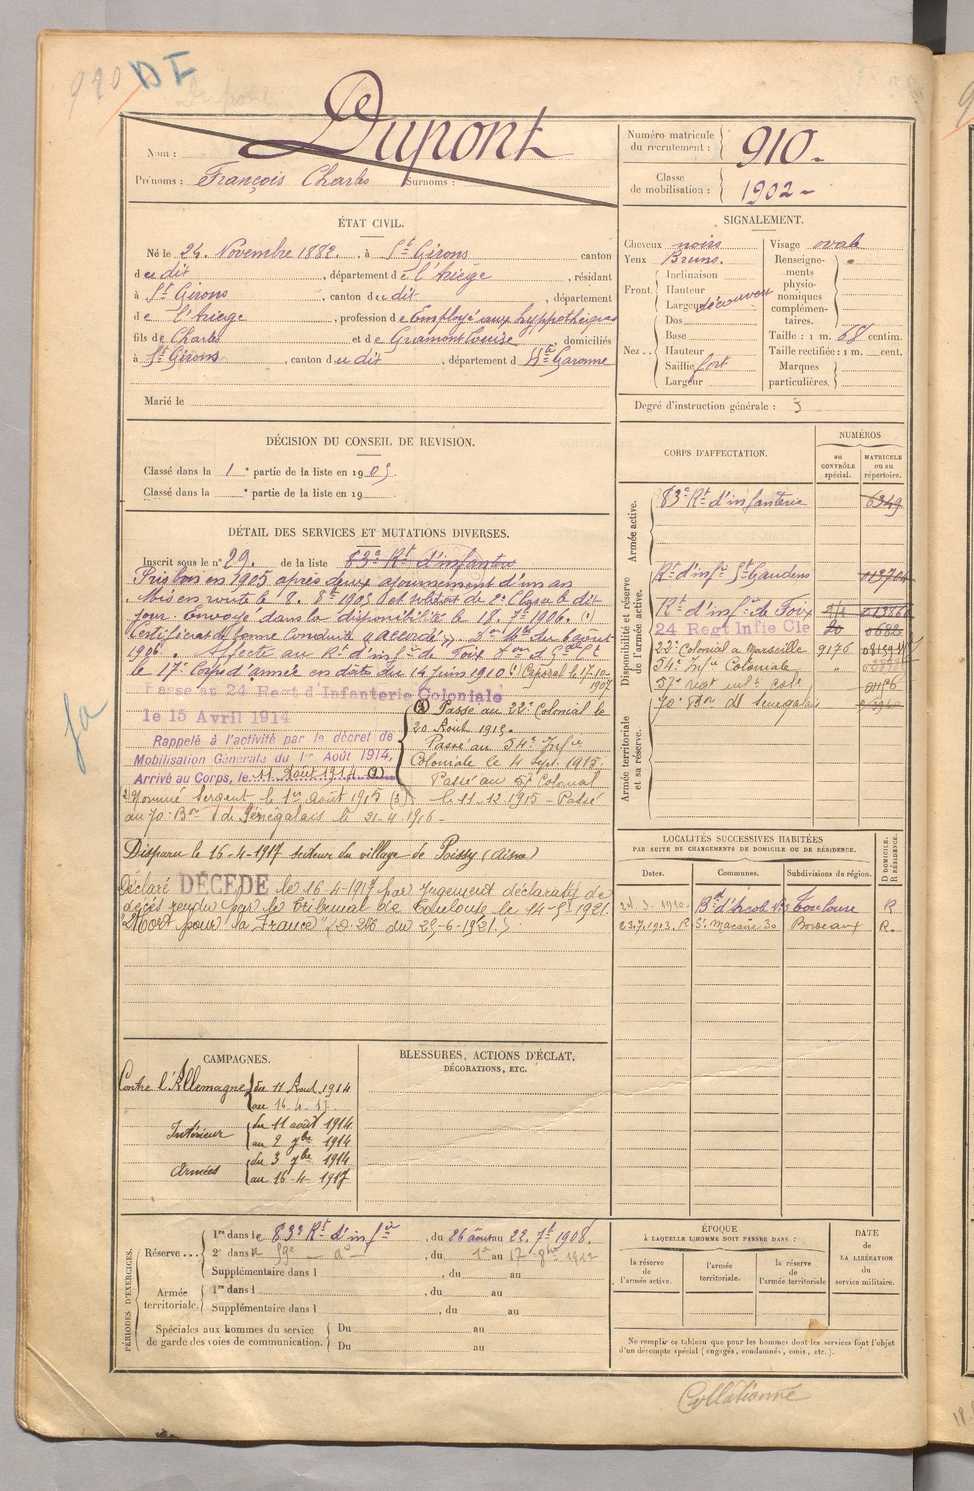 910 DI
Dupont
Nom : Dupont
Prénoms : François Charles Surnoms :
Numéro matricule du recrutement : 910.
Classe de mobilisation : 1902
ÉTAT CIVIL.
Né le 24 Novembre 1882. , à St Girons canton
d u dit , département de l'Ariège , résidant
à St Girons , canton du dit , département
de l'Ariège , profession de Employé aux hyppothèques
fils de Charles et de Gramont Louise , domiciliés
à St Girons , canton du dit , département d Hte Garonne
Marié le
SIGNALEMENT.
Cheveux noirs
Yeux Bruns.
Front. Inclinaison
Hauteur
Largeur découvert
Nez.. Dos
Base
Hauteur
Saillie fort
Largeur
Visage ovale
Renseignements physionomiques complémentaires.
Taille : 1 m. 68 centim.
Taille rectifiée : 1 m. cent.
Marques particulières.
Degré d'instruction générale : 3
DÉCISION DU CONSEIL DE REVISION.
Classé dans la 1 e partie de la liste en 1905.
Classé dans la e partie de la liste en 19
DÉTAIL DES SERVICES ET MUTATIONS DIVERSES.
Inscrit sous le n° 29. de la liste 83e Rt d'infanterie
Pris bon en 1905 après deux ajournement d'un an
Mis en route le 8. 8bre 1905 et soldat de 2e Classe le dit
jour. Envoyé dans la disponibilité le 18. 7bre 1906. (1)
Certificat de bonne Conduite "accordé".
1906. Affecté au Rt d'infie de Foix
le 17e Corps d'armée en date du 14 juin 1910 (1) Caporal le 17-10-1907
Passé au 24 Regt d'Infanterie Coloniale
le 15 Avril 1914
Rappelé à l'activité par le décret de
Mobilisation Générale du 1er Août 1914,
Arrivé au Corps, le 11 Août 1914 (2)
(2) Passé au 22e Colonial le
20 Août 1915.
Passé au 54e Infie
Coloniale le 4 Sept. 1915.
Passé au 57 Colonial
le 11-12-1915 - Passé
Nommé Sergent le 1er août 1915 (3)
au 70e Bon de Sénégalais le 21-4-1916 -
Disparu le 16-4-1917 secteur du village de Paissy (Aisne)
Déclaré DÉCÉDÉ le 16-4-1917 par Jugement déclaratif de
décès rendu par le Tribunal de Toulouse le 14-5-1921.
"Mort pour la France" du 25-6-1921.
CORPS D'AFFECTATION.
NUMÉROS
au CONTRÔLE spécial.
MATRICULE ou au répertoire.
Armée active.
83e Rt d'infanterie 6349
Disponibilité et réserve de l'armée active.
Rt d'infie St Gaudens
Rt d'infie de Foix
24 Regt Infie Cle
22e Colonial à Marseille 9176
54e Infie Coloniale "
57e regt infie cole
70e Bon de Sénégalais
Armée territoriale et sa réserve.
LOCALITÉS SUCCESSIVES HABITÉES
PAR SUITE DE CHANGEMENTS DE DOMICILE OU DE RÉSIDENCE.
Dates. Communes. Subdivisions de région. D DOMICILE. R RÉSIDENCE.
Bd d'Arcole Toulouse R
23.7.1913. R St Macaire 30 Bordeaux R.
CAMPAGNES.
Contre l'Allemagne du 11 Aout 1914
au 16. 4. 17
Intérieur du 11 août 1914
au 2 9bre 1914
Armées du 3 9bre 1914
au 16-4-1917
BLESSURES, ACTIONS D'ÉCLAT,
DÉCORATIONS, ETC.
PÉRIODES D'EXERCICES.
Réserve... 1re dans le 83e Rt d'infie , du 26 août au 22. 7bre 1908.
2e dans le 59e do , du 1er au 17 9bre 1912
Supplémentaire dans l , du au
Armée territoriale. 1re dans l , du au
Supplémentaire dans l , du au
Spéciales aux hommes du service
de garde des voies de communication. Du au
Du au
ÉPOQUE
À LAQUELLE L'HOMME DOIT PASSER DANS :
la réserve de l'armée active.
l'armée territoriale.
la réserve de l'armée territoriale
DATE de la LIBÉRATION du service militaire.
Ne remplir ce tableau que pour les hommes dont les services font l'objet
d'un décompte spécial (engagés, condamnés, omis, etc.).
Collationné